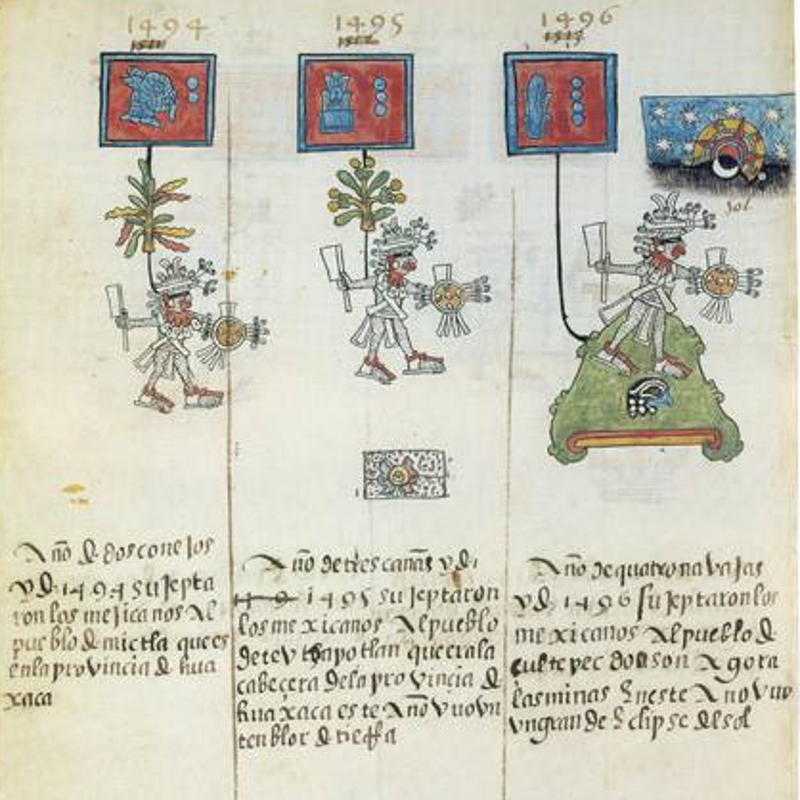 1494
1495
1496
sol
Año de dos conejos
y de 1494 sujepta
ron los mejicanos al
pueblo de mictla que es
en la provincia de hua
xaca
Año de tres cañas y de
1495 sujeptaron
los mexicanos al pueblo
de teutzapotlan que era la
cabecera de la provincia de
huaxaca este Año vuo vn
tenblor de tierra
Año de quatro navajas
y de 1496 sujeptaron los
mexicanos al pueblo de
cultepec do son Agora
las minas en este Año vuo
vn grande eclipse del sol